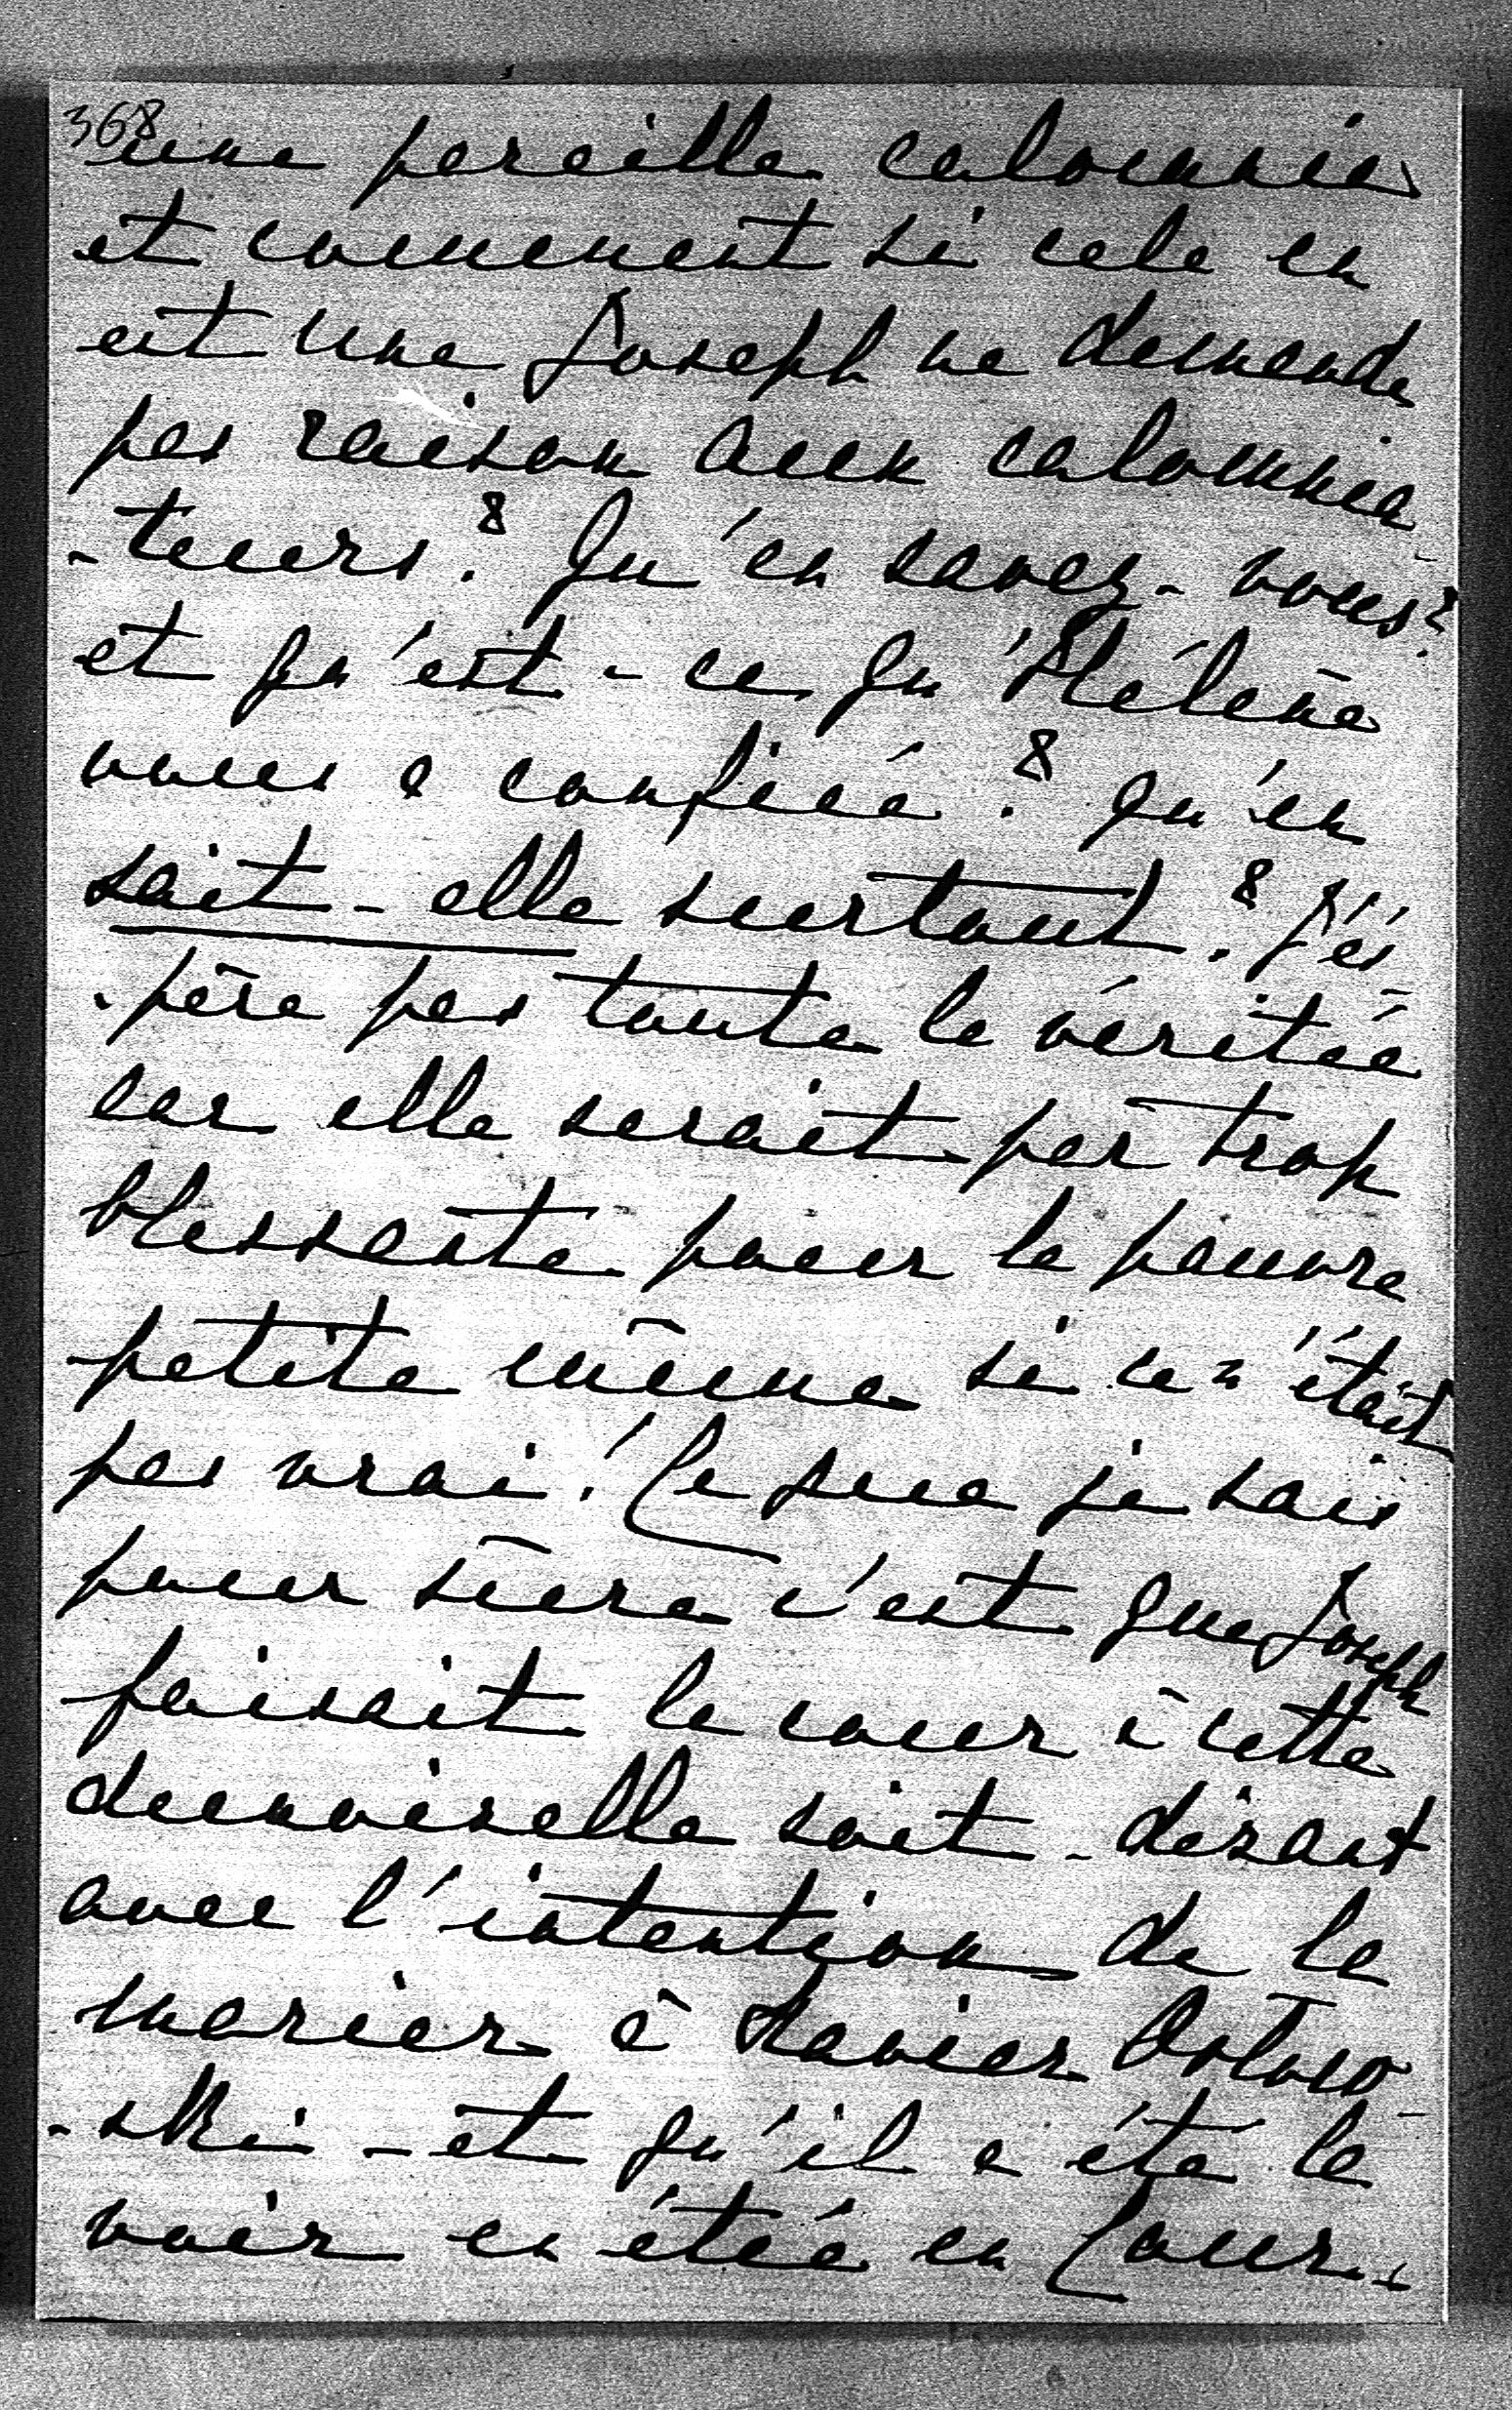 368
une pareille calomnie
et comment si cela en
est une Joseph ne demande
pas raison aux calomnia-
-teurs? Qu'en savez-vous?
et qu'est-ce qu'Hélène
vous a confiée? qu'en
sait-elle surtout? J'és-
-père pas toute la véritée
car elle serait par trop
blessante pour la pauvre
petite même si ce n'était
pas vrai! Ce que je sais
pour sûre c'est que Joseph
faisait la cour à cette
demoiselle soit-disant
avec l'intention de la
marier à Xavier Orlow-
-ski - et qu'il a été la
voir en étée en Cour-